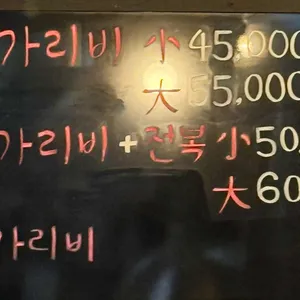 가리비 小 45,000
大 55,000
가리비 + 전복 小 50,
大 60
가리비